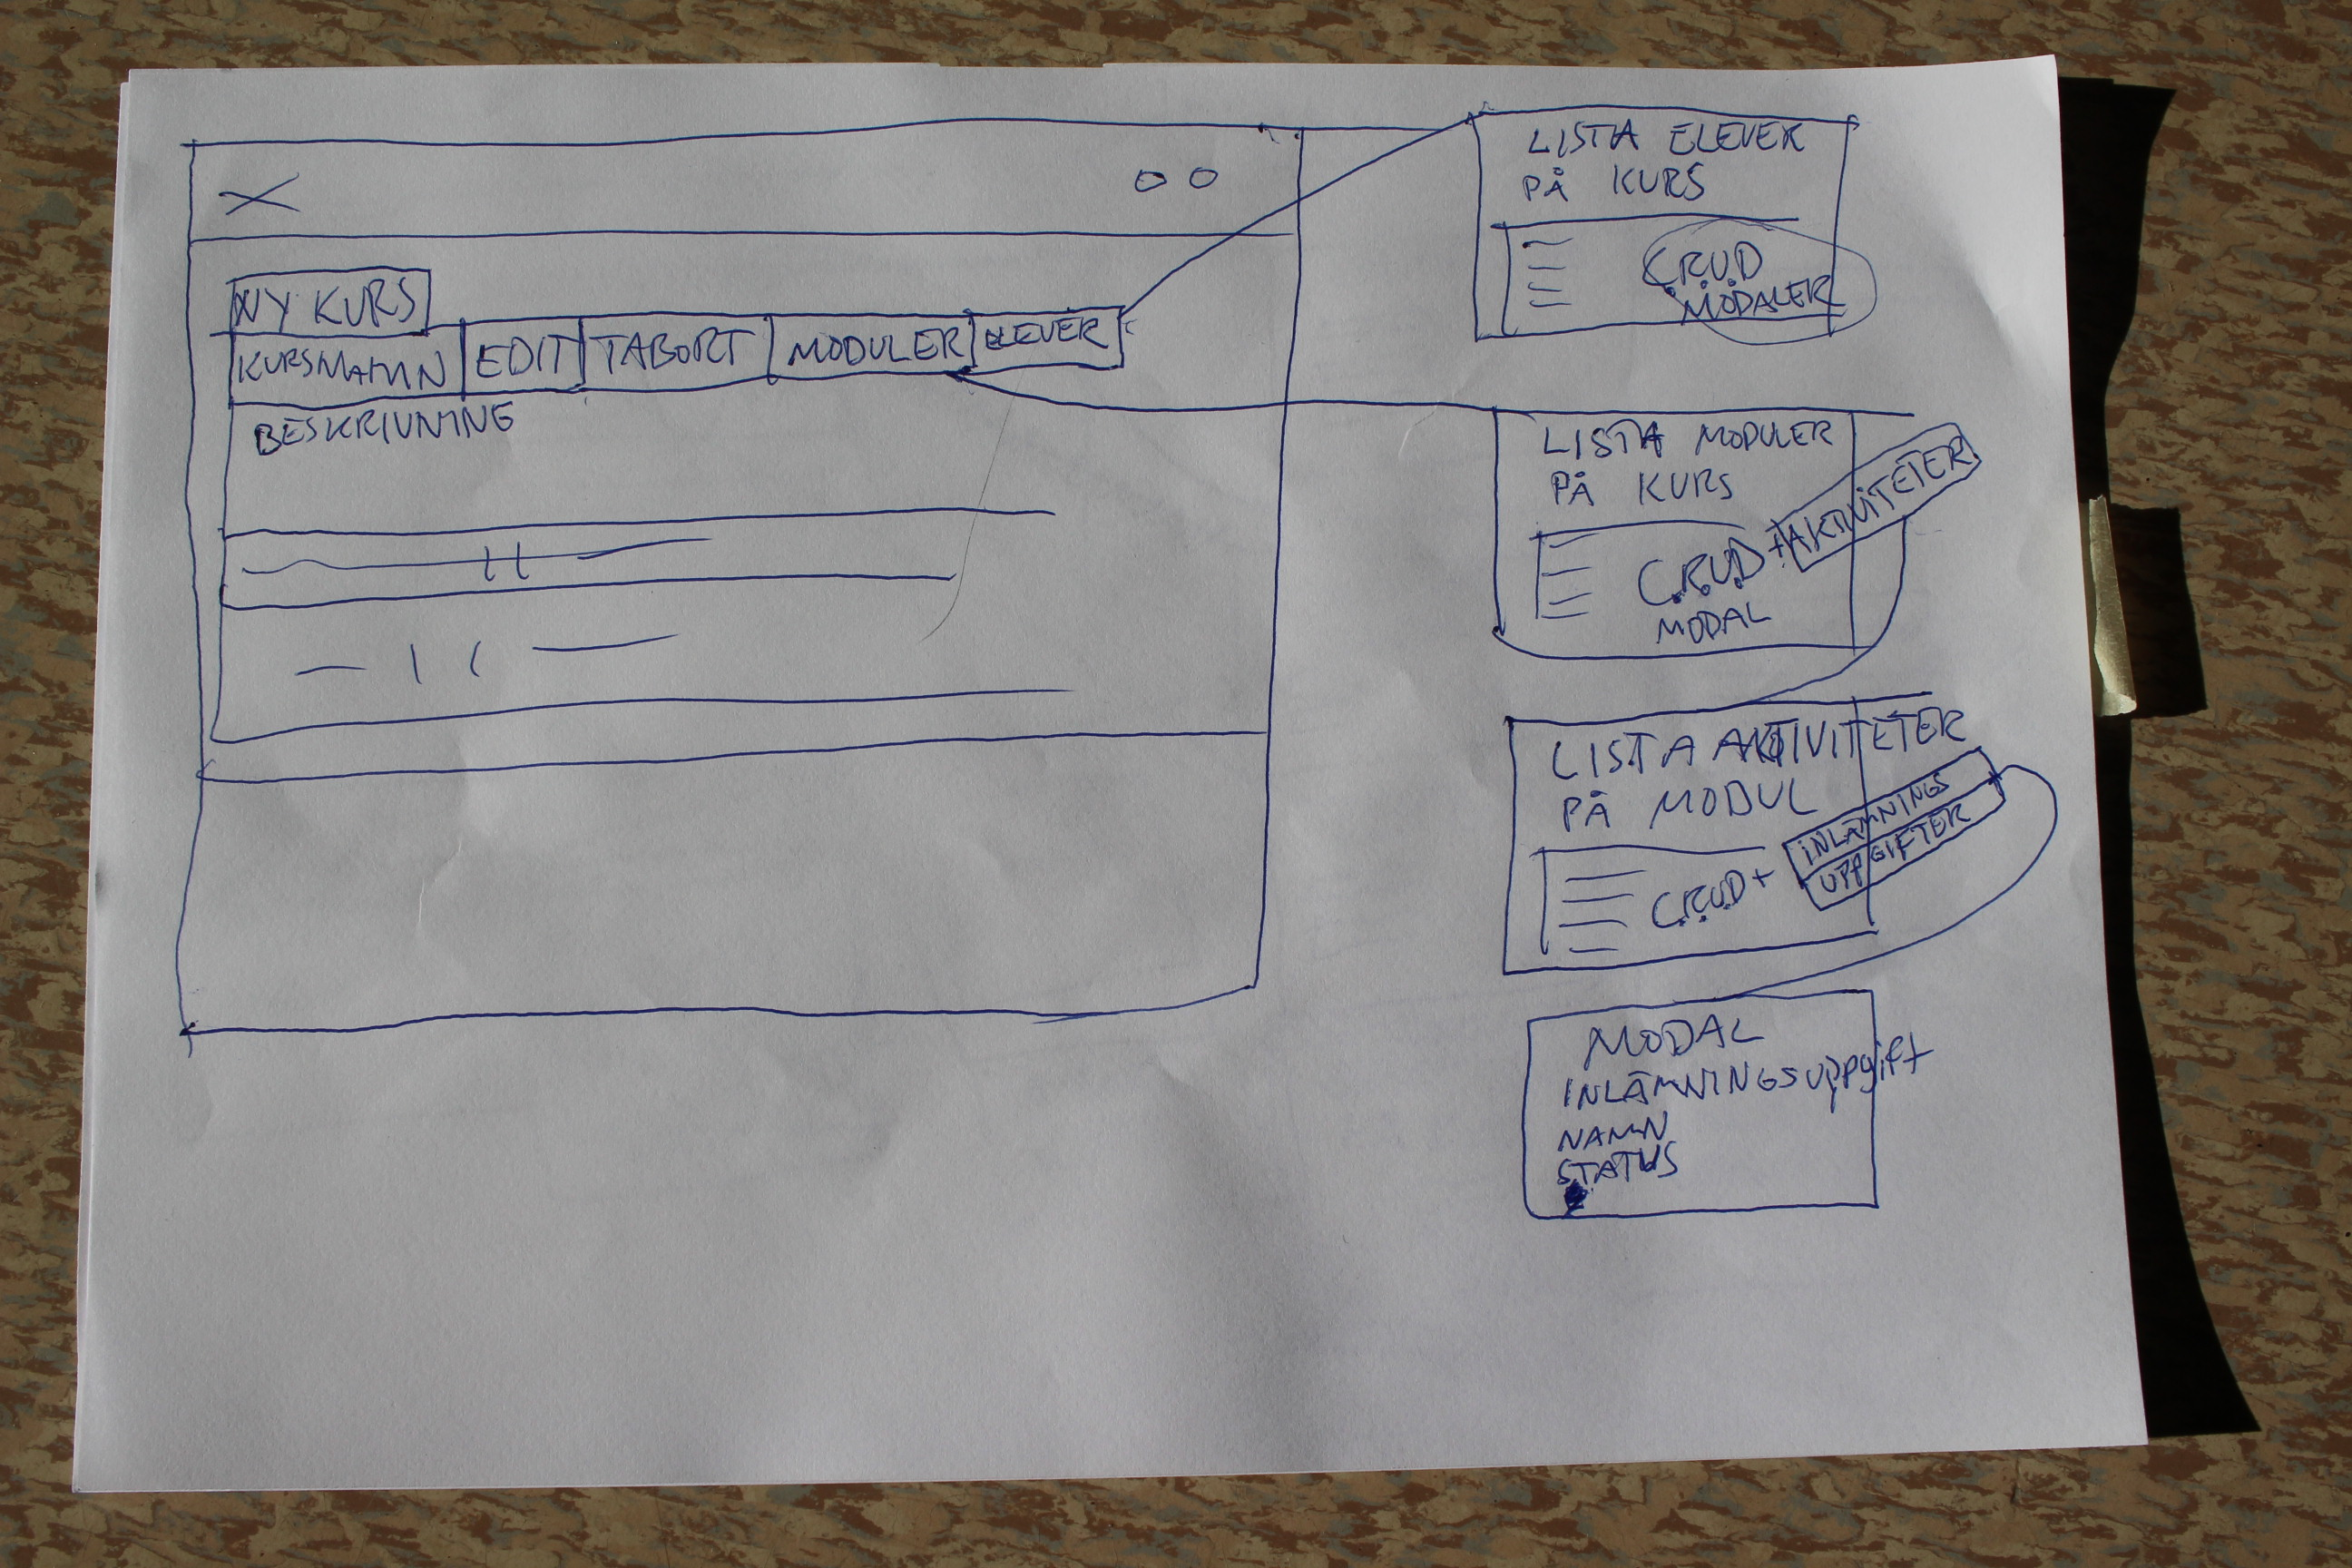 NY KURS
KURSNAMN EDIT TABORT MODULER ELEVER
BESKRIVNING
LISTA ELEVER
PÅ KURS
C.R.U.D
MODALER
LISTA MODULER
PÅ KURS
C.R.U.D + AKTIVITETER
MODAL
LISTA AKTIVITETER
PÅ MODUL
C.R.U.D + INLÄMNINGS
UPPGIFTER
MODAL
INLÄMNINGSUppgift
NAMN
STATUS